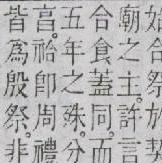 始合祭於
廟之主許言
合食蓋同而
五年之殊分
言祫卽周禮
皆為殷祭非